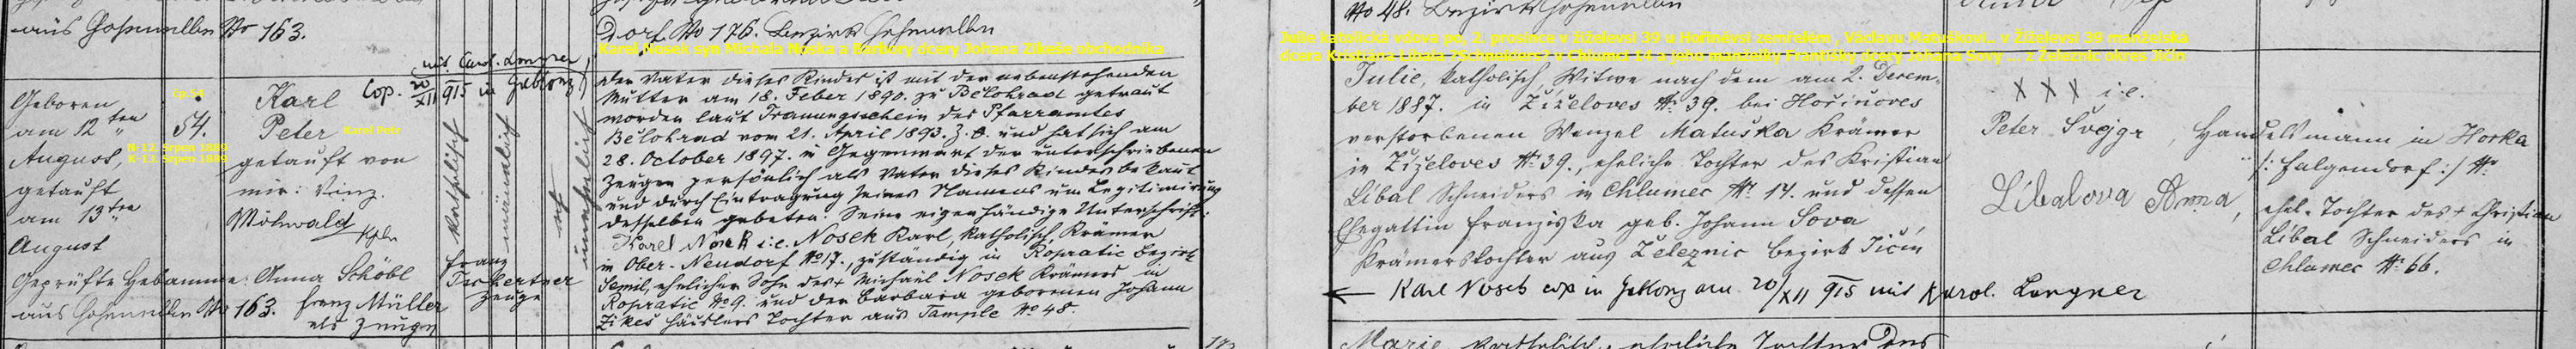 aus Hohenelbe No 163.
Dorf No 176. Bezirk Hohenelbe
No 48. Bezirk Hohenelbe
Karel Nosek syn Michala Noska a Barbory dcery Johana Zikeše obchodníka
Julie katolická vdova po, 2. prosince v Žiželevsi 39 u Hořiněvsi zemřelém , Václavu Matuškovi.. v Žiželevsi 39 manželská
dcera Kristiana Líbala ?Schneiders? v Chlumci 14 a jeho manželky Františky dcery Johana Sovy ... z Železnic okres Jičín
Geboren
am 12ten
August,
getauft
am 13ten
August
N-12. Srpen 1889
K-13. Srpen 1889
čp.54
54.
Karl
Peter
Karel Petr
getauft von
mir: Vinz.
Möhwald
Kpln
mit Carol. Langner
Cop. 20/XII 915 in Gablonz
katholisch
männlich
unehelich
Geprüfte Hebamme: Anna Schöbl
aus Hohenelbe No 163.
Franz Müller
als Zeuge
Franz
Zeuge
Der Vater dieses Kindes ist mit der nebenstehenden
Mutter am 18. Feber 1890. zu Bělohrad getraut
worden laut Trauungsschein des Pfarramtes
Bělohrad vom 21. April 1893. Z. 8. und hat sich am
28. October 1897. in Gegenwart der unterschriebenen
Zeugen persönlich als Vater dieses Kindes bekannt
und durch Eintragung seines Namens um Legitimirung
desselben gebeten. Seine eigenhändige Unterschrift:
Karel Nosek i.e. Nosek Karl, katholisch, Krämer
in Ober-Neudorf No 17., zuständig in Ropratic Bezirk
Semil, ehelicher Sohn des + Michael Nosek Krämers in
Ropratic No 9. und der Barbara geborenen Johann
Zikeš Häuslers Tochter aus Sample No 48.
Julie, katholisch, Witwe nach dem am 2. Decem-
ber 1887. in Žiželoves No 39. bei Hořinoves
verstorbenen Wenzel Matuška Krämer
in Žiželoves No 39., eheliche Tochter des Kristian
Líbal Schneiders in Chlumec No 14. und dessen
Ehegattin Franziska geb. Johann Sova
Krämerstochter aus Železnic Bezirk Jičín
← Karl Nosek cop in Gablonz am 20/XII 915 mit Karol. Langner
XXX i.e.
Peter Švejgr, Handelsmann in Horka
/: Falgendorf :/ No
Líbalova Anna, ehel. Tochter des + Christian
Líbal Schneiders in
Chlumec No 66.
Marie, katholisch, eheliche Tochter des